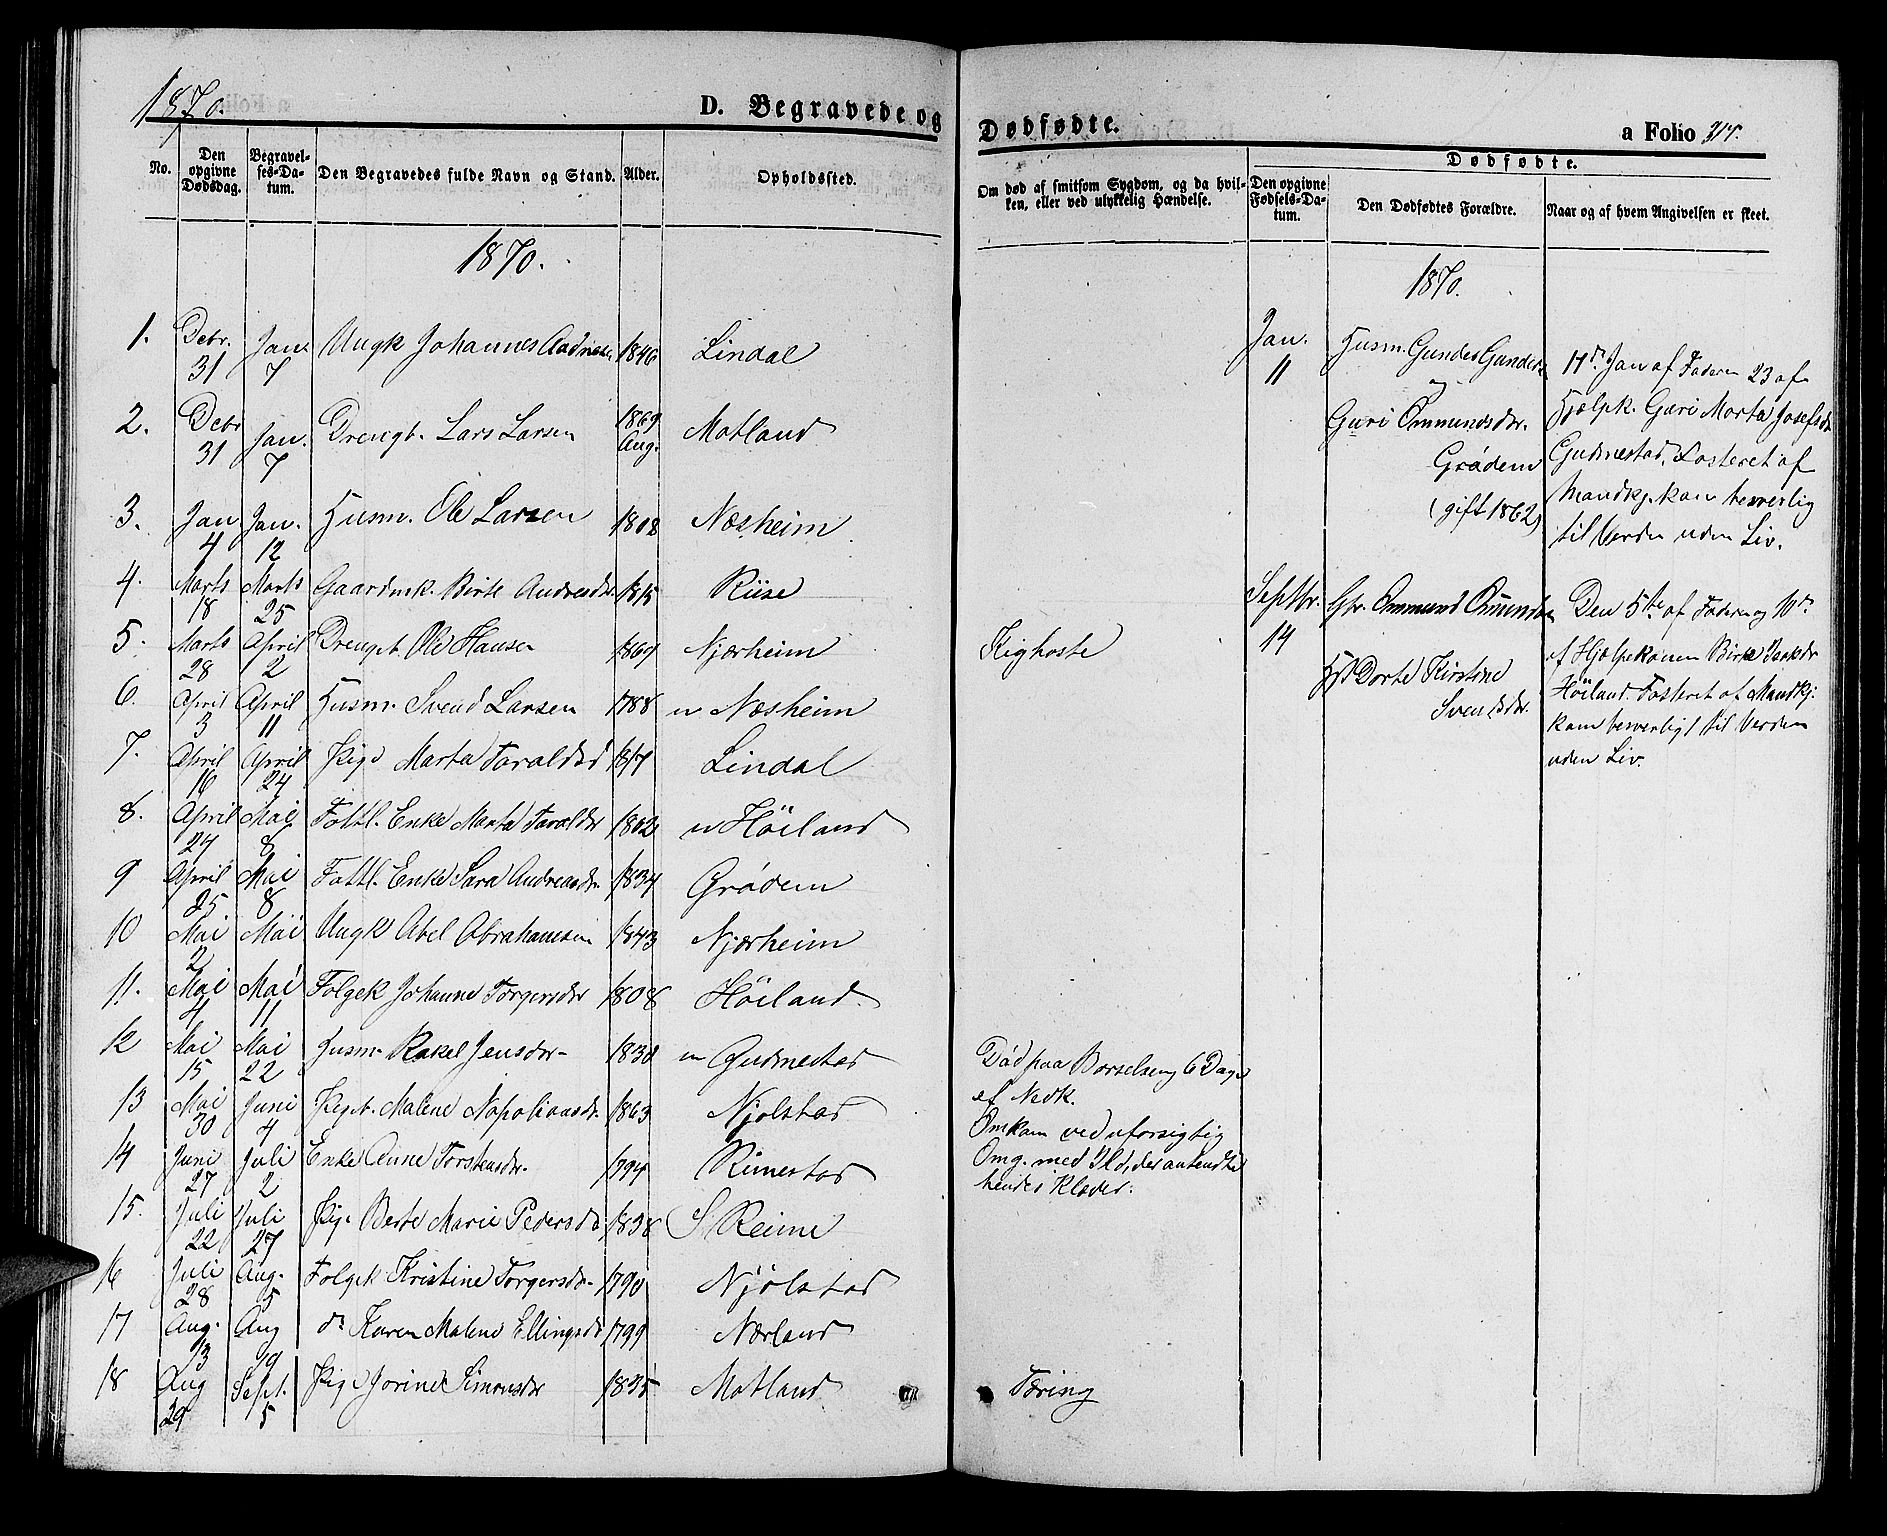 1870.
D. Begravede og Dødfødte.
a Folio 214.
No.
Den opgivne Dødsdag.
Begravel-ses-Da-tum.
Den Begravedes fulde Navn og Stand.
Alder.
Opholdssted.
Om død af smitsom Sygdom, og da hvil-
ken, eller ved ulykkelig Hændelse.
Dødfødte.
Den opgivne Fødsels-Da-tum.
Den Dødfødtes Forældre.
Naar og af hvem Angivelsen er skeet.
1870.
1. Debr. 31 Jan. 7 Ungk Johannes 1846 Lindal
2. Debr 31 Jan. 7 Drengb. Lars Larsen 1869 Aug. Motland
3. Jan 4 Jan. 12 Husm. Ole Larsen 1808 Næsheim
4. Marts 18 Marts 25 Gaardmk. Birte Andreasdr. 1815 Riise
5. Marts 28 April 2 Drengb. Ole Hansen 1869 Njærheim Kighoste
6. April 3 April 11 Husm. Svend Larsen 1788 u Næsheim
7. April 16 April 24 Pige Marta Taraldsd Lindal
8. April 29 Mai 8 Fattl. Enke Marta Taraldsdr 1802 u Höiland
9 April 25 Mai 8 Fattl. Enke Sara Andreasdr. 1834 Grødem
10 Mai 2 Mai Ungk Abel Abrahamsen 1843 Njærheim
11. Mai 4 Mai 11 Folgek Johanne Torgersdr 1808 Höiland
12 Mai 15 Mai 22 Husm. Rakel Jensdr. 1830 u Gudmestad Död paa Barselseng 6 Dage
ef Nedk.
13 Mai 30 Juni 4 Pigeb. Malene Napoliansdr. 1863 Njolstad Omkom ved uforsigtig
Omg. med Ild, der antendte
hendes Klæder.
14 Juni 27 Juli 2 Enke Anne Torstensdr. 1794 Rimestad
15. Juli 22 Juli 27 Pige Berte Marie Pedersd 1838 S. Reime
16 Juli 28 Aug. 5 Folgek Kristine Torgersdr. 1790 Njölstad
17 Aug. 13 Aug 19 do Karen Malene Ellingsd 1799 Nærland
18 Aug 29 Sept. 5 Pige Jorine Simonsdr 1835 Motland Tæring
1870.
Jan. 11
Husm. Gunder Gunders
og
Guri Ommundsdr.
Grödem
(gift 1862)
11te Jan af Faderen 23 af
Hjælpk. Guri Marta Josefsdr
Gudmestad. Fosteret af
Mandkj. kom besverlig
til Verden uden Liv.
Septbr. 14
Gbr. Ommund Omundsen
Hst Dorte Kirstine
Svendsdr.
Den 5te af Faderen og
af Hjælpekonen Birte Isaksdr
Höiland. Fosteret af Mandkj.
kom besverligt til Verden
uden Liv.